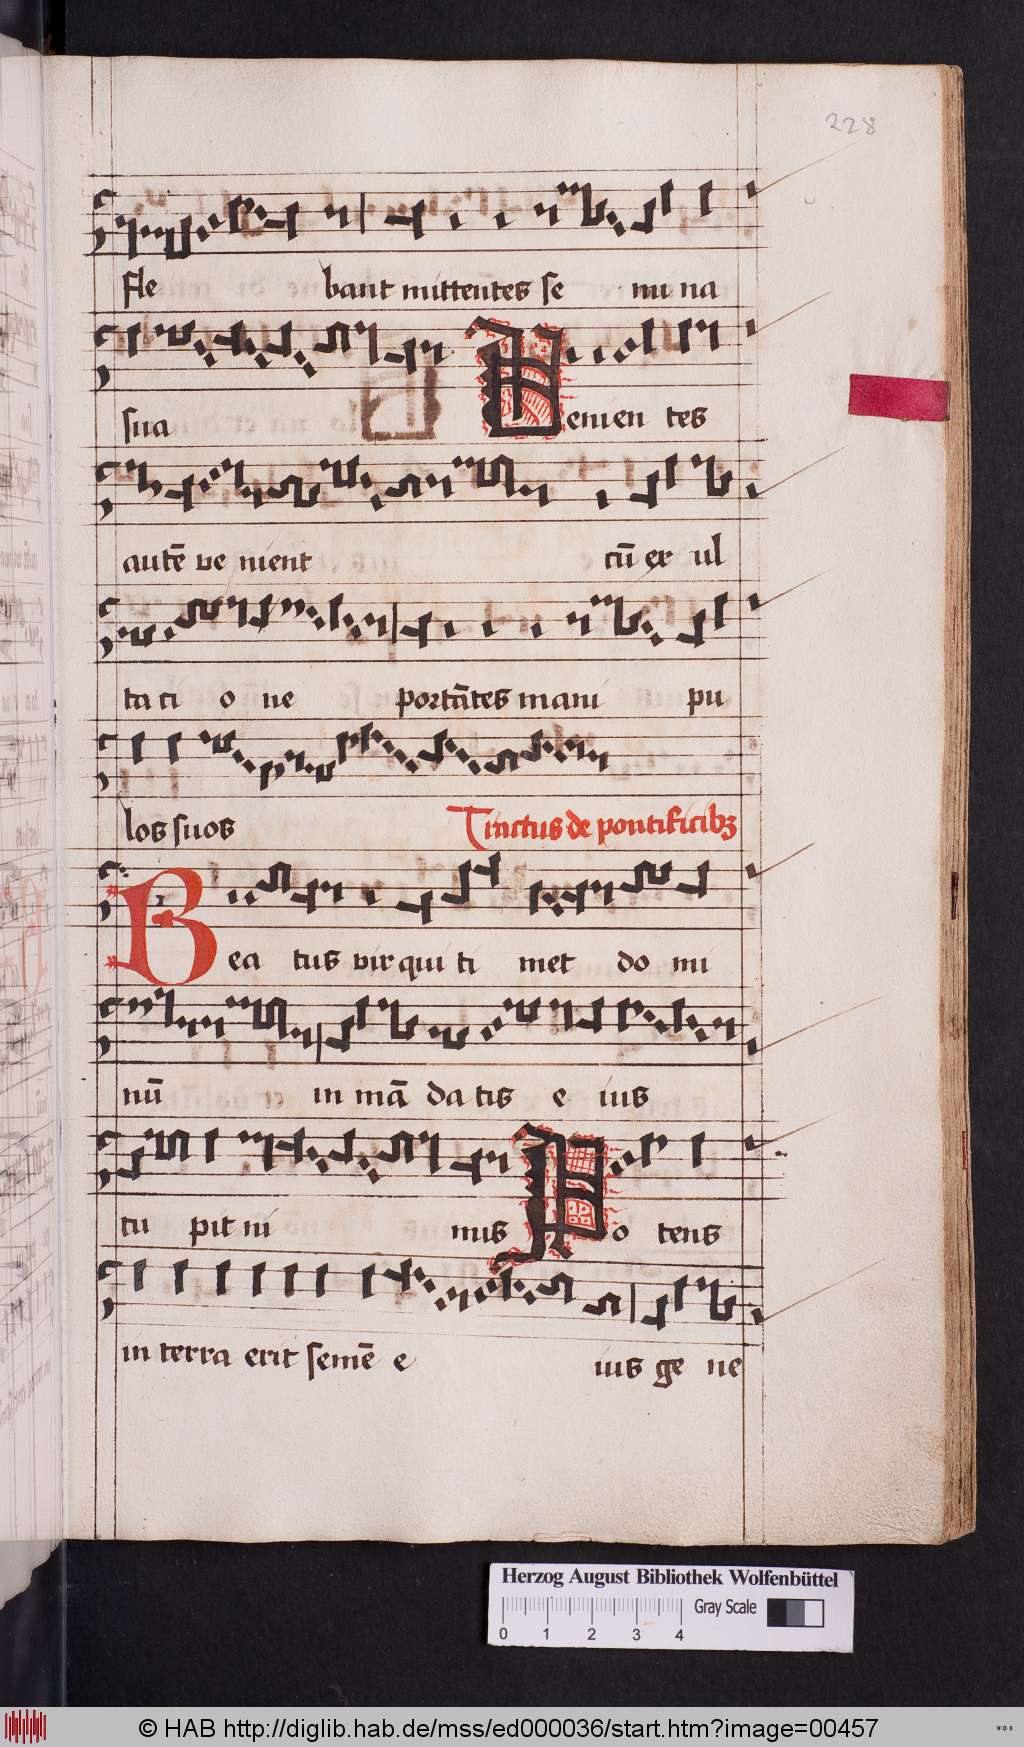 228
fle bant mittentes se mi na
sua Uenien tes
autē ve nient cū ex ul
ta ti o ne portātes mani pu
los suos Tractus de pontificibꝫ
Bea tus vir qui ti met do mi
nū in mā da tis e ius
tu pit ni mis Po tens
in terra erit semē e ius ge ne
Herzog August Bibliothek Wolfenbüttel
0 1 2 3 4 Gray Scale
© HAB http://diglib.hab.de/mss/ed000036/start.htm?image=00457